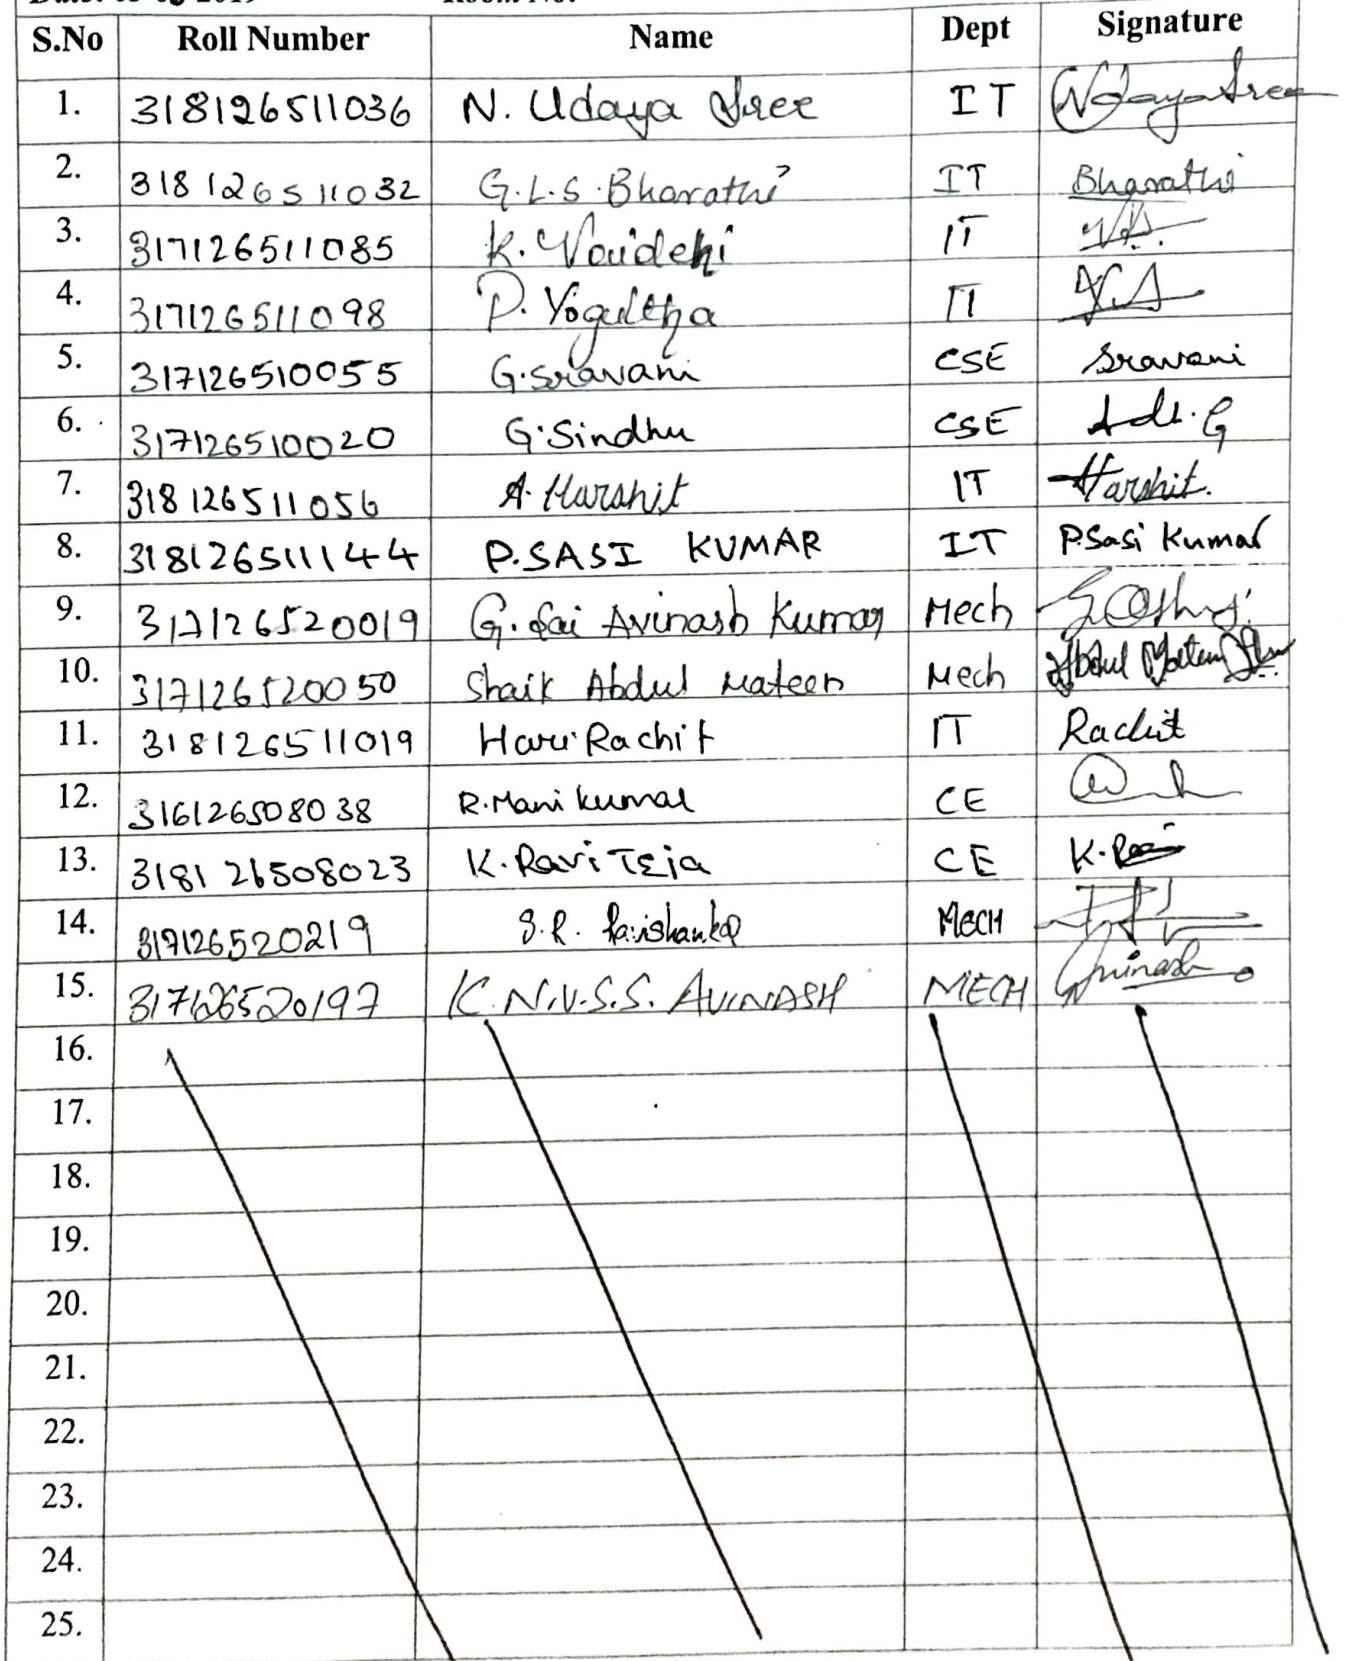 S.No Roll Number Name Dept Signature
1. 318126511036 N. Udaya Sree IT NdayaSree
2. 318126511032 G.L.S.Bharathi IT Bharathi
3. 317126511085 K. Vaidehi IT
4. 317126511098 P. Yogultha IT
5. 317126510055 G.Sravani CSE Sravani
6. 317126510020 G.Sindhu CSE
7. 318126511056 A.Harshit IT Harshit.
8. 318126511144 P.SASI KUMAR IT P.Sasi Kumar
9. 317126520019 G. Sai Avinash Kumar Mech
10. 317126520050 Shaik Abdul Mateen Mech Abdul Mateen
11. 318126511019 Hari Rachit IT Rachit
12. 316126508038 R.Mani kumar CE
13. 318126508023 K.Ravi Teja CE K.
14. 317126520219 S.R. Ravishankar MECH
15. 317126520197 K.N.V.S.S. AVINASH MECH Avinash
16.
17.
18.
19.
20.
21.
22.
23.
24.
25.